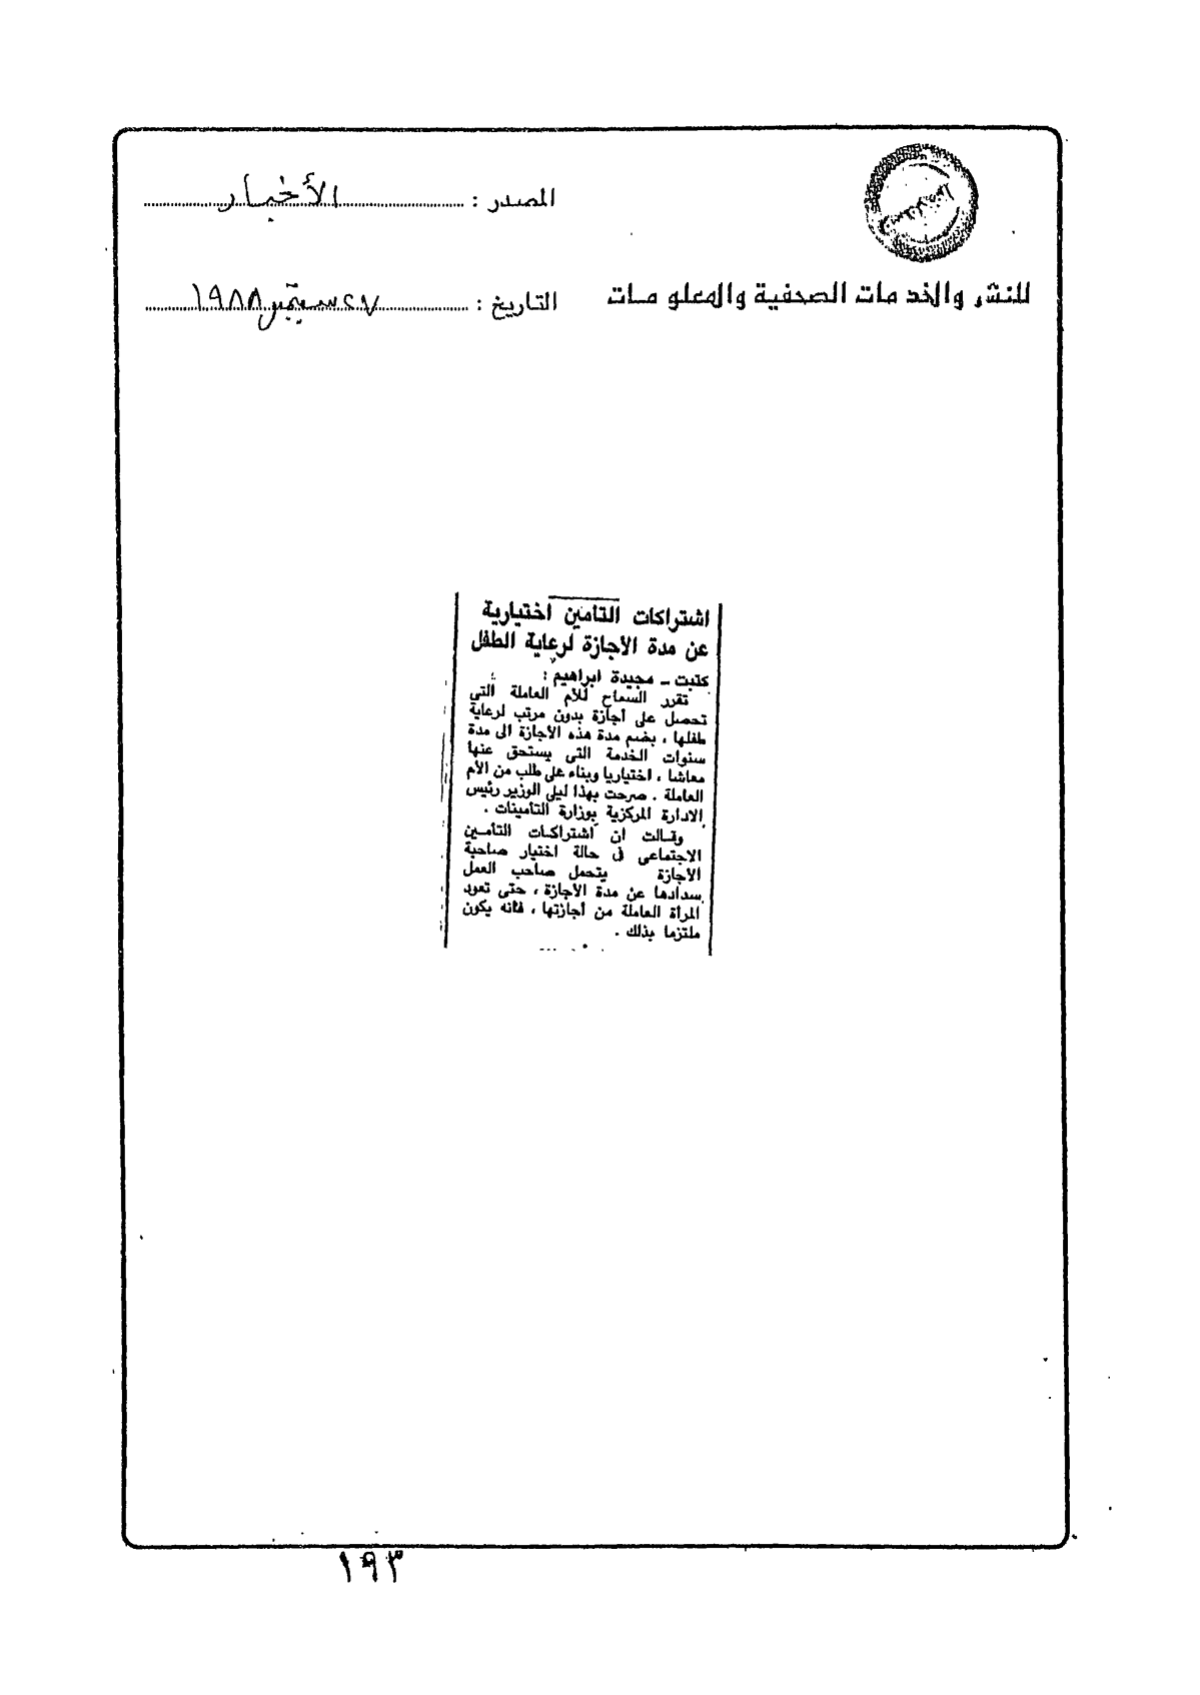 المصدر : الأخبار
للنشر والخدمات الصحفية والمعلومات
التاريخ : ٢٧ سبتمبر ١٩٨٨
اشتراكات التأمين اختيارية
عن مدة الأجازة لرعاية الطفل
كتبت ـ مجيدة ابراهيم :
تقرر السماح للأم العاملة التى
تحصل على أجازة بدون مرتب لرعاية
طفلها ، بضم مدة هذه الأجازة الى مدة
سنوات الخدمة التى يستحق عنها
معاشا ، اختياريا وبناء على طلب من الأم
العاملة . صرحت بهذا ليلى الوزير رئيس
الادارة المركزية بوزارة التأمينات .
وقالت ان اشتراكات التأمين
الاجتماعى فى حالة اختيار صاحبة
الأجازة يتحمل صاحب العمل
سدادها عن مدة الأجازة ، حتى تعود
المرأة العاملة من أجازتها ، فانه يكون
ملتزما بذلك .
١٩٣